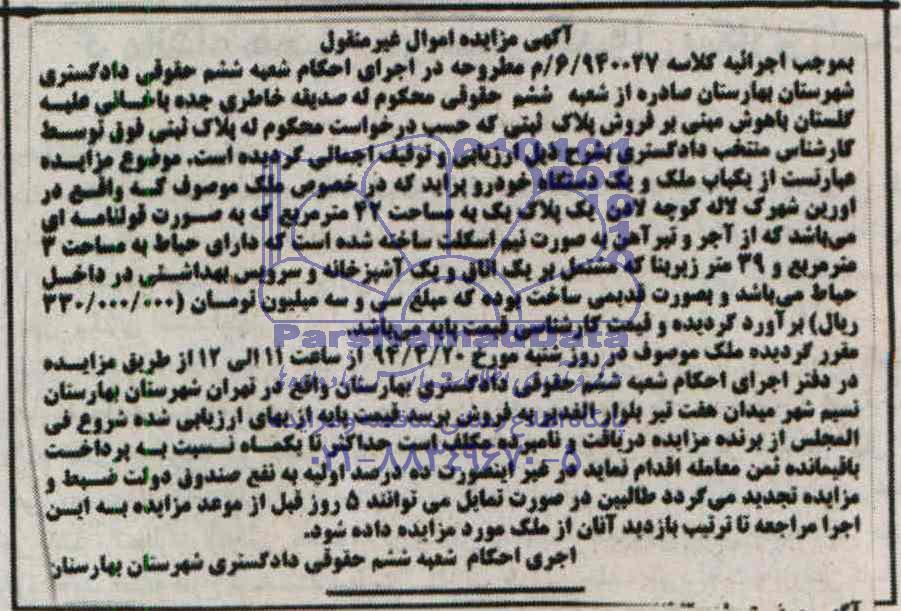 آگهی مزایده اموال غیرمنقول
بموجب اجرائیه کلاسه ۶/۹۴۰۰۲۷/م مطروحه در اجرای احکام شعبه ششم حقوقی دادگستری
شهرستان بهارستان صادره از شعبه ششم حقوقی محکوم له صدیقه خاطری جده باغبانی علیه
گلستان باهوش مبنی بر فروش پلاک ثبتی که حسب درخواست محکوم له پلاک ثبتی فوق توسط
کارشناس منتخب دادگستری بشرح ذیل ارزیابی و توقیف اجمالی گردیده است. موضوع مزایده
عبارتست از یکباب ملک و یک دستگاه خودرو پراید که در خصوص ملک موصوف که واقع در
اورین شهرک لاله کوچه لادن یک پلاک یک به مساحت ۴۲ مترمربع که به صورت قولنامه ای
می‌باشد که از آجر و تیرآهن به صورت نیم اسکلت ساخته شده است که دارای حیاط به مساحت ۳
مترمربع و ۳۹ متر زیربنا که مشتمل بر یک اتاق و یک آشپزخانه و سرویس بهداشتی در داخل
حیاط می‌باشد و بصورت قدیمی ساخت بوده که مبلغ سی و سه میلیون تومان (۳۳۰/۰۰۰/۰۰۰
ریال) برآورد گردیده و قیمت کارشناسی قیمت پایه می‌باشد.
مقرر گردیده ملک موصوف در روز شنبه مورخ ۹۴/۳/۲۰ از ساعت ۱۱ الی ۱۲ از طریق مزایده
در دفتر اجرای احکام شعبه ششم حقوقی دادگستری بهارستان واقع در تهران شهرستان بهارستان
نسیم شهر میدان هفت تیر بلوار الغدیر به فروش برسد قیمت پایه از بهای ارزیابی شده شروع فی
المجلس از برنده مزایده دریافت و نامبرده مکلف است حداکثر تا یکماه نسبت به پرداخت
باقیمانده ثمن معامله اقدام نماید در غیر اینصورت ده درصد اولیه به نفع صندوق دولت ضبط و
مزایده تجدید می‌گردد طالبین در صورت تمایل می توانند ۵ روز قبل از موعد مزایده به این
اجرا مراجعه تا ترتیب بازدید آنان از ملک مورد مزایده داده شود.
اجری احکام شعبه ششم حقوقی دادگستری شهرستان بهارستان
ParsNamadData
۰۲۱-۸۸۳۴۹۶۷۰-۵